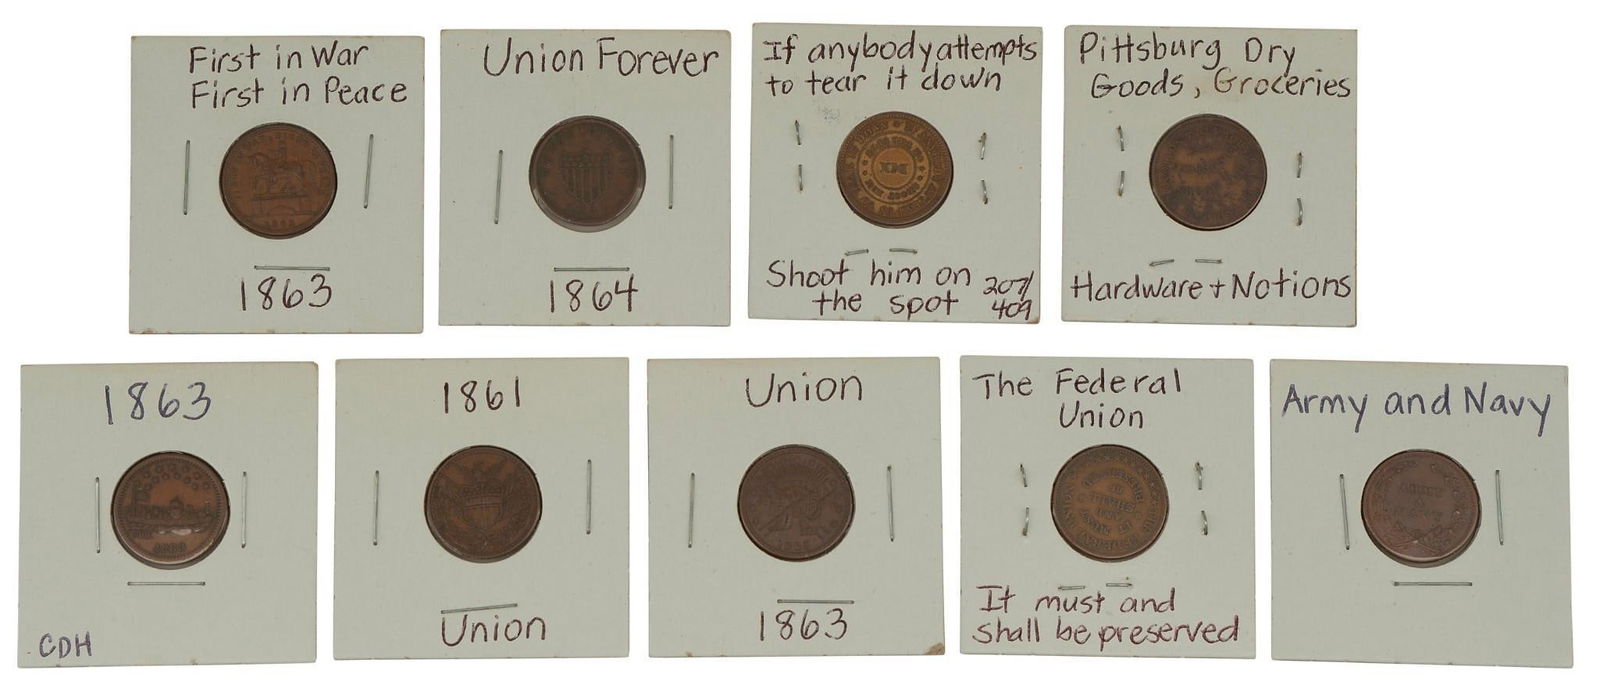 First in War
First in Peace
1863
Union Forever
1864
If anybody attempts
to tear it down
Shoot him on
the spot
207/
409
Pittsburg Dry
Goods, Groceries
Hardware + Notions
1863
1863
CDH
1861
Union
Union
1863
The Federal
Union
It must and
shall be preserved
Army and Navy